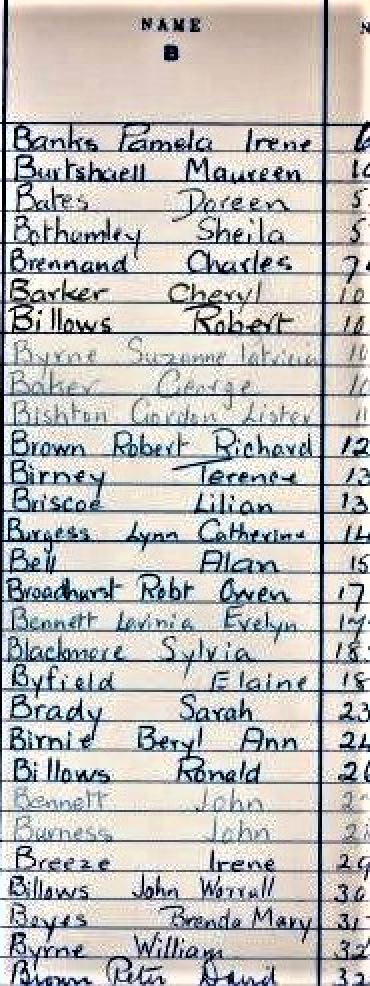 NAME
B
Banks Pamela Irene 6
Burtshaell Maureen 10
Bates Doreen 5
Bothamley Sheila 5
Brennand Charles 7
Barker Cheryl 10
Billows Robert 10
Byrne Suzanne Patricia 10
Baker George 10
Bishton Gordon Lister 11
Brown Robert Richard 12
Birney Terence 13
Briscoe Lilian 13
Burgess Lynn Catherine 14
Bell Alan 15
Broadhurst Robt Owen 17
Bennett Levinia Evelyn 17
Blackmore Sylvia 18
Byfield Elaine 18
Brady Sarah 23
Birnie Beryl Ann 24
Billows Ronald 26
Bennett John 2
Burness John 2
Breeze Irene 29
Billows John Worrall 30
Boyes Brenda Mary 31
Byrne William 32
Brown Peter David 32